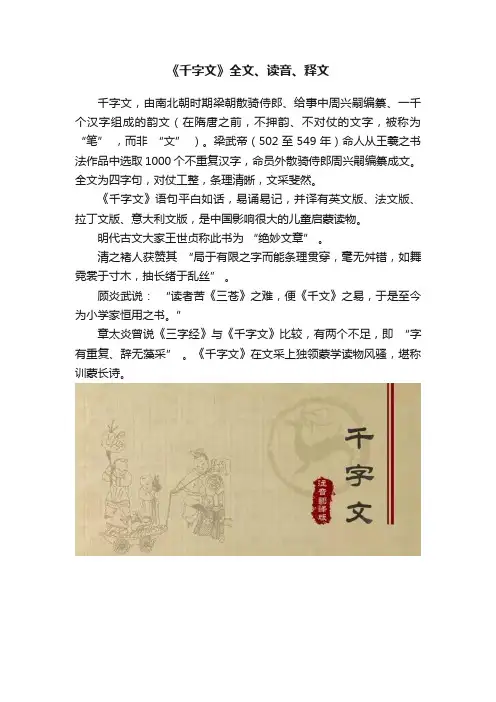 《千字文》全文、读音、释文
千字文，由南北朝时期梁朝散骑侍郎、给事中周兴嗣编纂、一千
个汉字组成的韵文（在隋唐之前，不押韵、不对仗的文字，被称为
“笔” ，而非 “文” ）。梁武帝（502 至 549 年）命人从王羲之书
法作品中选取 1000 个不重复汉字，命员外散骑侍郎周兴嗣编纂成文。
全文为四字句，对仗工整，条理清晰，文采斐然。
《千字文》语句平白如话，易诵易记，并译有英文版、法文版、
拉丁文版、意大利文版，是中国影响很大的儿童启蒙读物。
明代古文大家王世贞称此书为 “绝妙文章” 。
清之褚人获赞其 “局于有限之字而能条理贯穿，毫无舛错，如舞
霓裳于寸木，抽长绪于乱丝” 。
顾炎武说： “读者苦《三苍》之难，便《千文》之易，于是至今
为小学家恒用之书。”
章太炎曾说《三字经》与《千字文》比较，有两个不足，即 “字
有重复、辞无藻采” 。《千字文》在文采上独领蒙学读物风骚，堪称
训蒙长诗。
千字文
注音翻译版